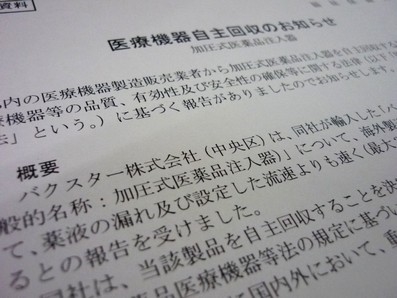 資料
医療機器自主回収のお知らせ
加圧式医薬品注入器
内の医療機器製造販売業者から加圧式医薬品注入器を自主回収する
療機器等の品質、有効性及び安全性の確保等に関する法律(以下
法」という。)に基づく報告がありましたのでお知らせします。
概要
バクスター株式会社(中央区)は、同社が輸入した「バ
般的名称:加圧式医薬品注入器)」について、海外製造
て、薬液の漏れ及び設定した流速よりも速く(最大
るとの報告を受けました。
同社は、当該製品を自主回収することを決
医薬品医療機器等法の規定に基づい
に国内外において、重